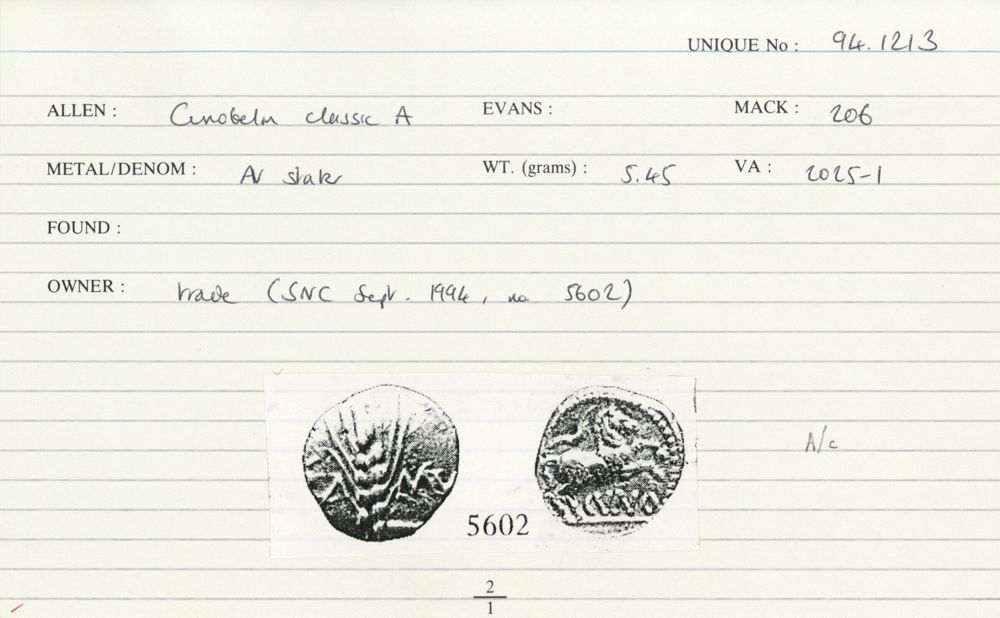 UNIQUE No : 94.1213
ALLEN : Cunobelin classic A EVANS : MACK : 206
METAL/DENOM : AV stater WT. (grams) : 5.45 VA : 2025-1
FOUND :
OWNER : trade (SNC Sept. 1994, no. 5602)
A/c
5602
2
1